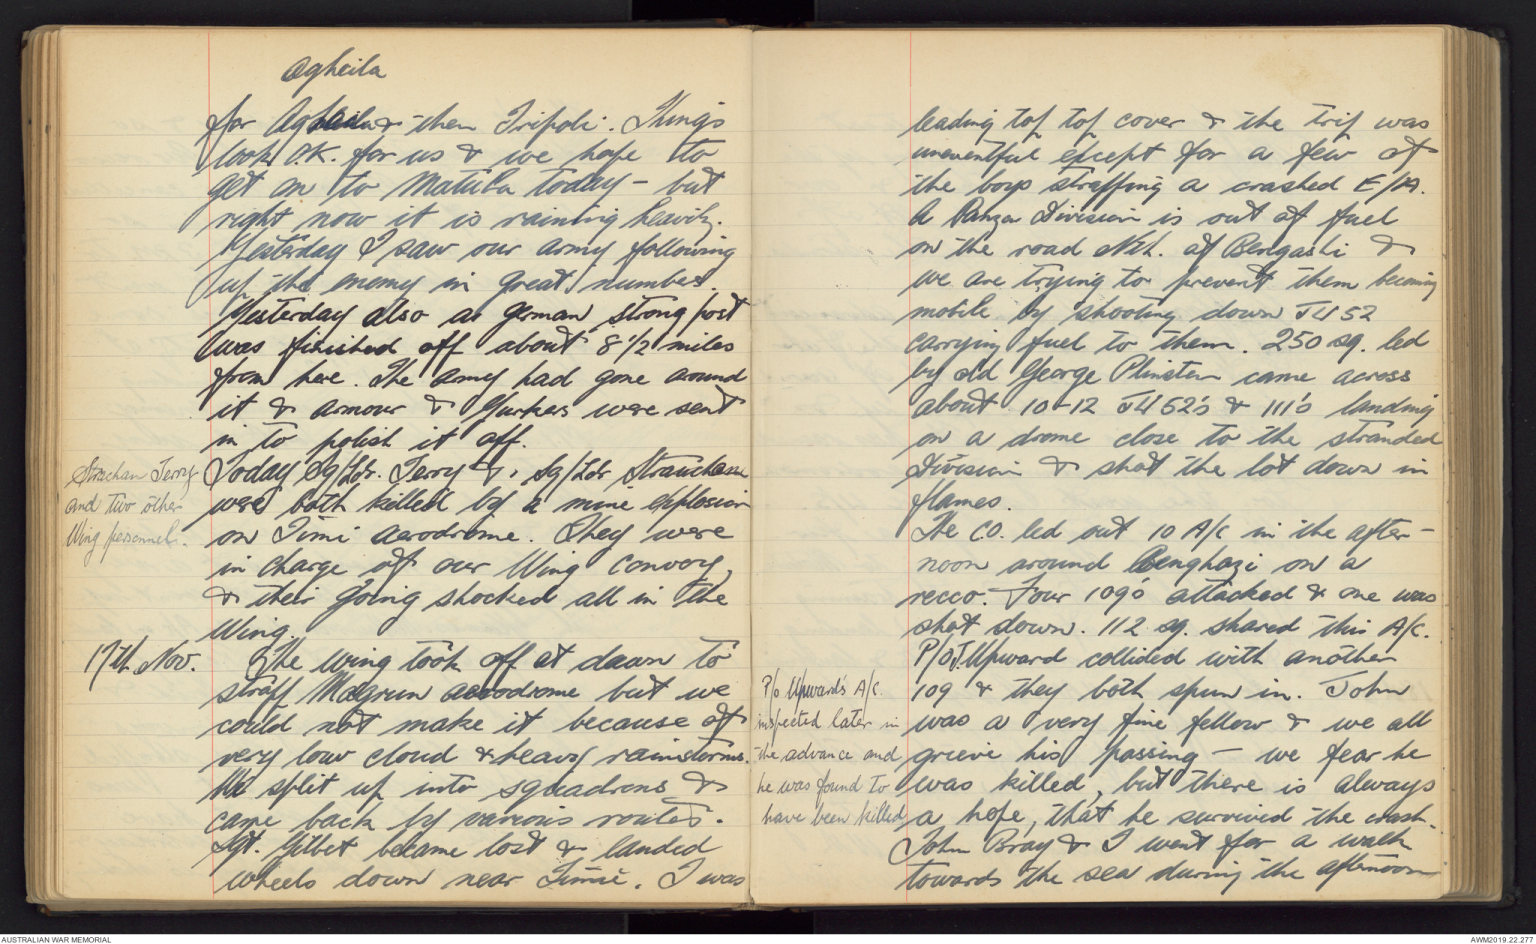 Agheila
for Agheila & then Tripoli. Things
look O.K. for us & we hope to
get on to Matuba today - but
right now it is raining heavily.
Yesterday I saw our army following
up the enemy in great number.
Yesterday also a German strong post
was finished off about 8 1/2 miles
from here. The army had gone around
it & armour & Gurkas were sent
in to polish it off.
Today Sq/Ldr. Terry & Sq/Ldr Strachan
were both killed by a mine explosion
on Timi aerodrome. They were
in charge of our Wing convoy,
& their going shocked all in the
Wing.
Strachan Terry
and two other
Wing personnel.
17th Nov. The wing took off at dawn to
straff Magrun aerodrome but we
could not make it because of
very low cloud & heavy rainstorms.
We split up into squadrons &
came back by various routes.
Sgt. Gilbet became lost & landed
wheels down near Timi. I was
leading top top cover & the trip was
uneventful except for a few of
the boys straffing a crashed E/A.
A Panzer Division is out of fuel
on the road Nth. of Bengashi &
we are trying to prevent them becoming
mobile by shooting down JU 52
carrying fuel to them. 250 sq. led
by old George Plinsten came across
about 10-12 JU 52's & 111's landing
on a drome close to the stranded
Division & shot the lot down in
flames.
The CO. led out 10 A/C in the after-
noon around Benghazi on a
recco. Four 109's attacked & one was
shot down. 112 sq. shared this A/C.
P/O J. Upward collided with another
109 & they both spun in. John
was a very fine fellow & we all
grieve his passing - we fear he
was killed, but there is always
a hope, that he survived the crash.
John Bray & I went for a walk
towards the sea during the afternoon
P/o Upward's A/C.
inspected later in
the advance and
he was found to
have been killed
AUSTRALIAN WAR MEMORIAL
AWM2019.22.277